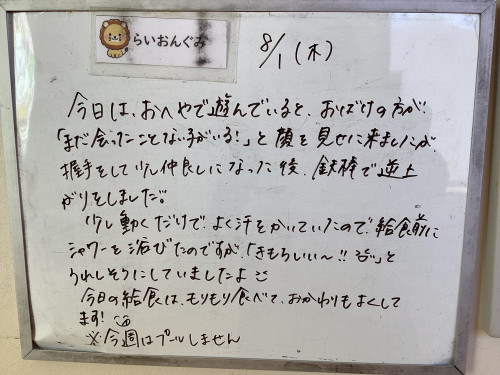 らいおんぐみ
8/1 (木)
今日は、おへやで遊んでいると、おばけの方が、
「まだ会ったことない子がいる!」と顔を見せに来ましたが
握手をして少し仲良しになった後、鉄棒で逆上
がりをしました。
少し動くだけで、よく汗をかいていたので、給食前に
シャワーを浴びたのですが、「きもちいい〜!!」と
うれしそうにしていましたよ
今日の給食は、もりもり食べて、おかわりもよくして
ます!
※今週はプールしません